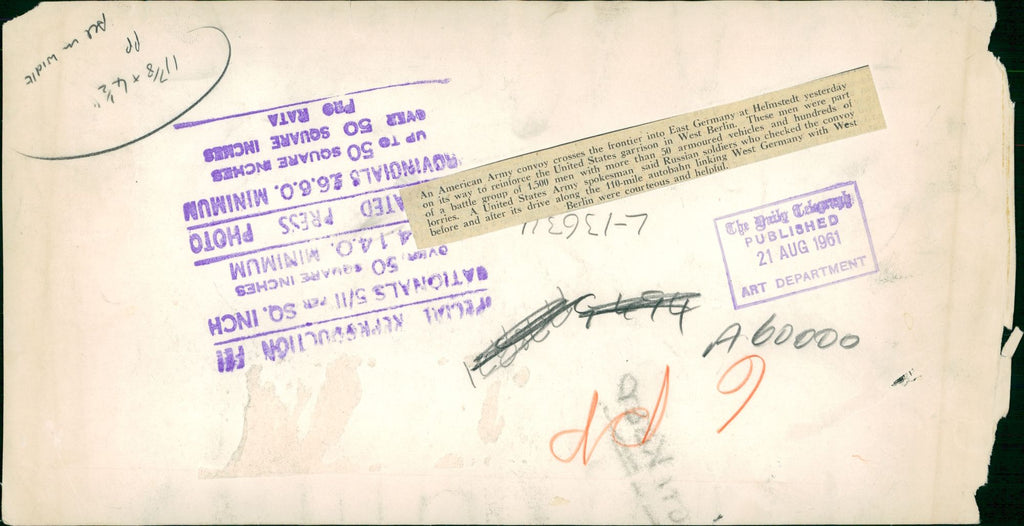 An American Army convoy crosses the frontier into East Germany at Helmstedt yesterday
on its way to reinforce the United States garrison in West Berlin. These men were part
of a battle group of 1,500 men with more than 50 armoured vehicles and hundreds of
lorries. A United States Army spokesman said Russian soldiers who checked the convoy
before and after its drive along the 110-mile autobahn linking West Germany with West
Berlin were courteous and helpful.
The Daily Telegraph
PUBLISHED
21 AUG 1961
ART DEPARTMENT
A60000
SPECIAL REPRODUCTION FEE
NATIONALS 5/11 PER SQ. INCH
OVER 50 SQUARE INCHES
4.14.0. MINIMUM
ATED PRESS PHOTO
PROVINCIALS £6.6.0. MINIMUM
UP TO 50 SQUARE INCHES
OVER 50 SQUARE INCHES
PRO RATA
11 7/8 x 4 1/2"
PP